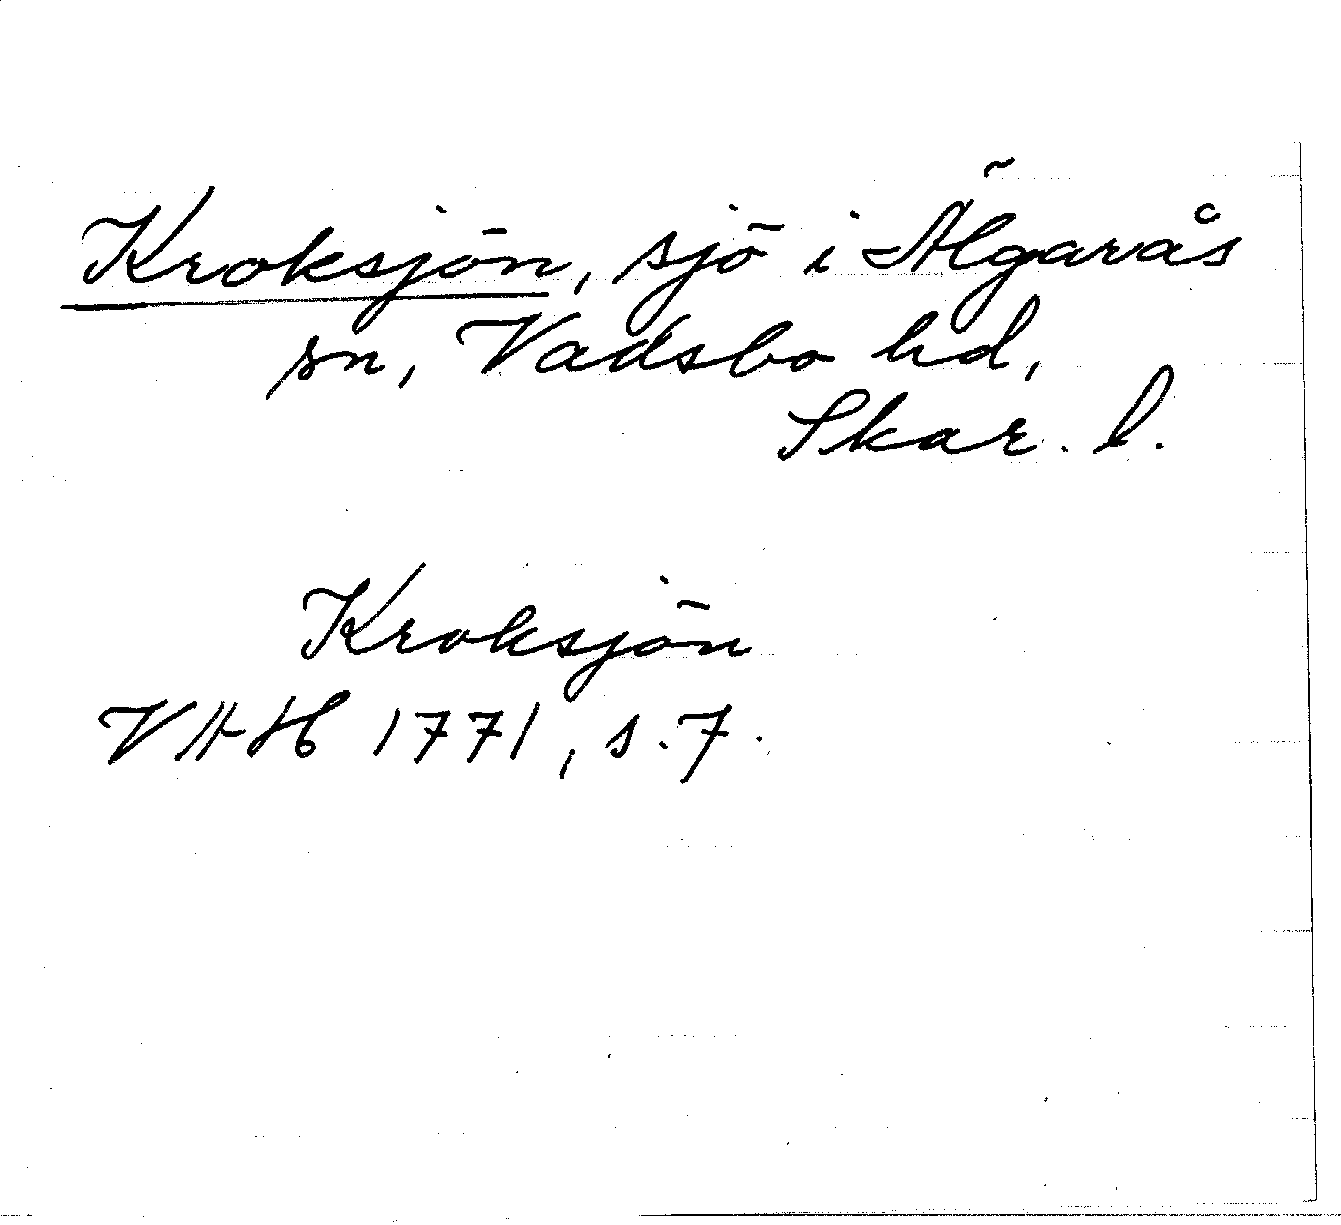 Kroksjön, sjö i Älgarås
sn, Vadsbo hd,
Skar. l.
Kroksjön
VHH 1771, s. 7.